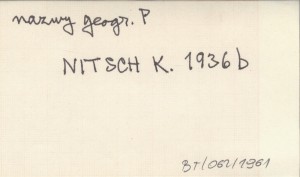 nazwy geogr. P
NITSCH K. 1936 b
BT/062/1961